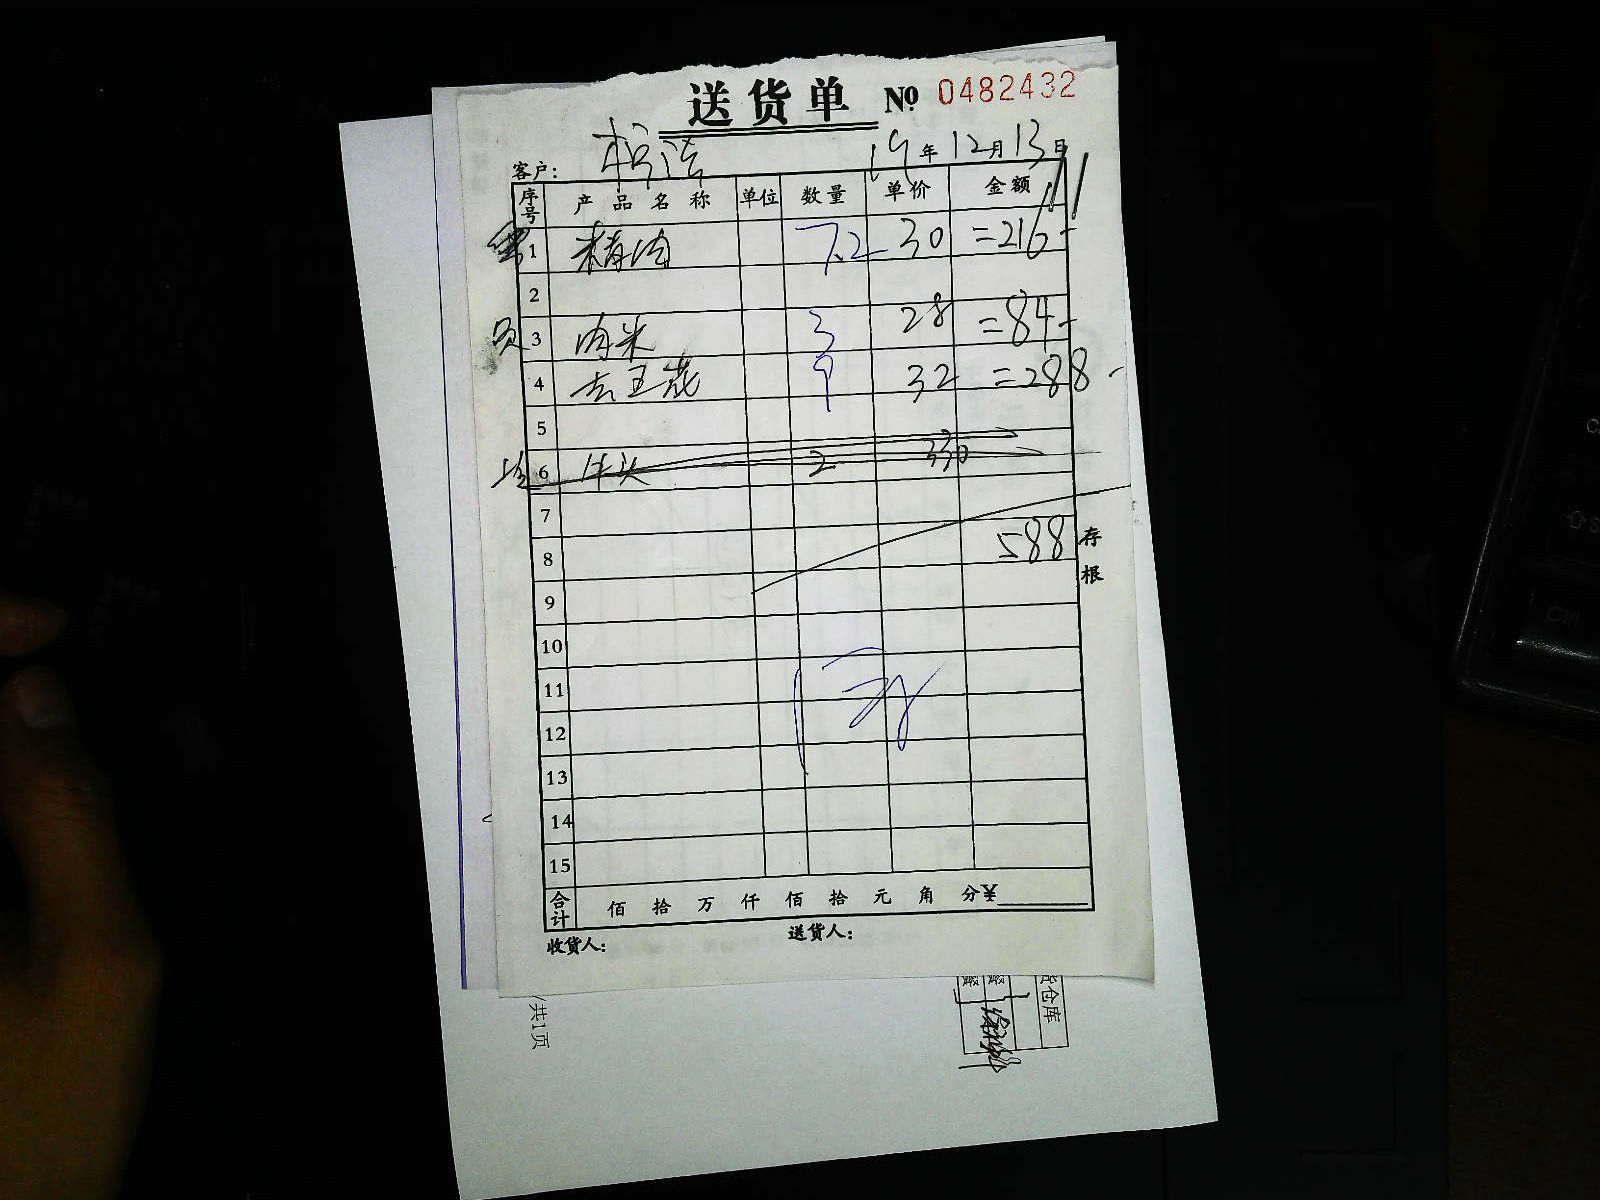 送货单 № 0482432
客户: 19年12月13日
序号 产品名称 单位 数量 单价 金额
1 精肉 7.2 30 =216-
2
3 肉米 3 28 =84-
4 去王花 9 32 =288-
5
6 牛头 2 330
7
8 588
9
10
11
12
13
14
15
合计 佰 拾 万 仟 佰 拾 元 角 分¥
收货人: 送货人:
存根
/共1页
货仓库